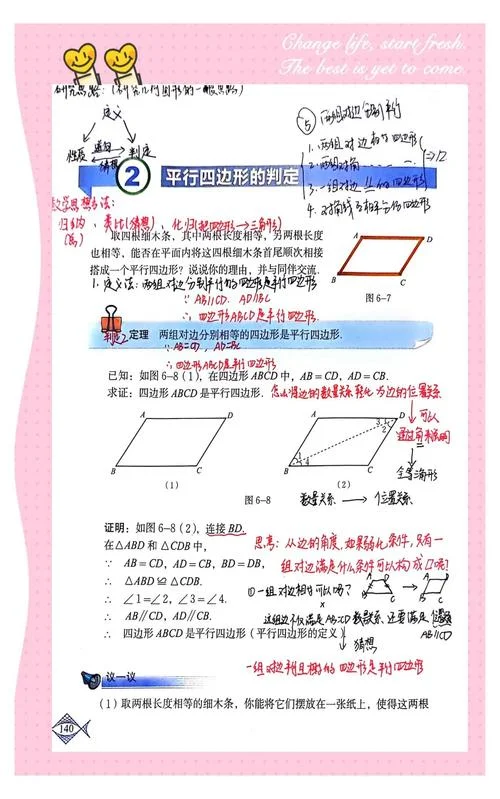 Change life, start fresh.
The best is yet to come.
研究思路:(研究几何图形的一般思路)
定义
性质 判定
猜想
⑤两组对边分别平行
1.两组对边 的四边形
2.两组对角
3.一组对边 的四边形
4.对角线互相平分的四边形
2 平行四边形的判定
数学思想方法:
归纳、类比(猜想)、化归(把四边形→三角形)
取四根细木条,其中两根长度相等,另两根长度
也相等,能否在平面内将这四根细木条首尾顺次相接
搭成一个平行四边形?说说你的理由,并与同伴交流.
A D
B C
图6-7
1.定义法:两组对边分别平行的四边形是平行四边形
∵AB∥CD,AD∥BC
∴四边形ABCD是平行四边形
判定2 定理 两组对边分别相等的四边形是平行四边形.
∵AB=CD,AD=BC
∴四边形ABCD是平行四边形
已知:如图6-8(1),在四边形ABCD中,AB=CD,AD=CB.
求证:四边形ABCD是平行四边形.
怎么将边的数量关系转化为边的位置关系
可以
通过角来说明
全等三角形
A D
B C
(1)
A D
3 1
2
4
B C
(2)
图6-8
数量关系→位置关系
证明:如图6-8(2),连接BD.
在△ABD和△CDB中,
∵ AB=CD,AD=CB,BD=DB,
∴ △ABD≌△CDB.
∴ ∠1=∠2,∠3=∠4.
∴ AB∥CD,AD∥CB.
∴ 四边形ABCD是平行四边形(平行四边形的定义).
思考:从边的角度,如果弱化条件,只有一
组对边满足什么条件可以构成▱呢?
①一组对边相等可以呢?
这组边不仅满足AB=CD数量关系,还要满足位置
AB∥CD
猜想
一组对边平行且相等的四边形是平行四边形
议一议
(1)取两根长度相等的细木条,你能将它们摆放在一张纸上,使得这两根
140